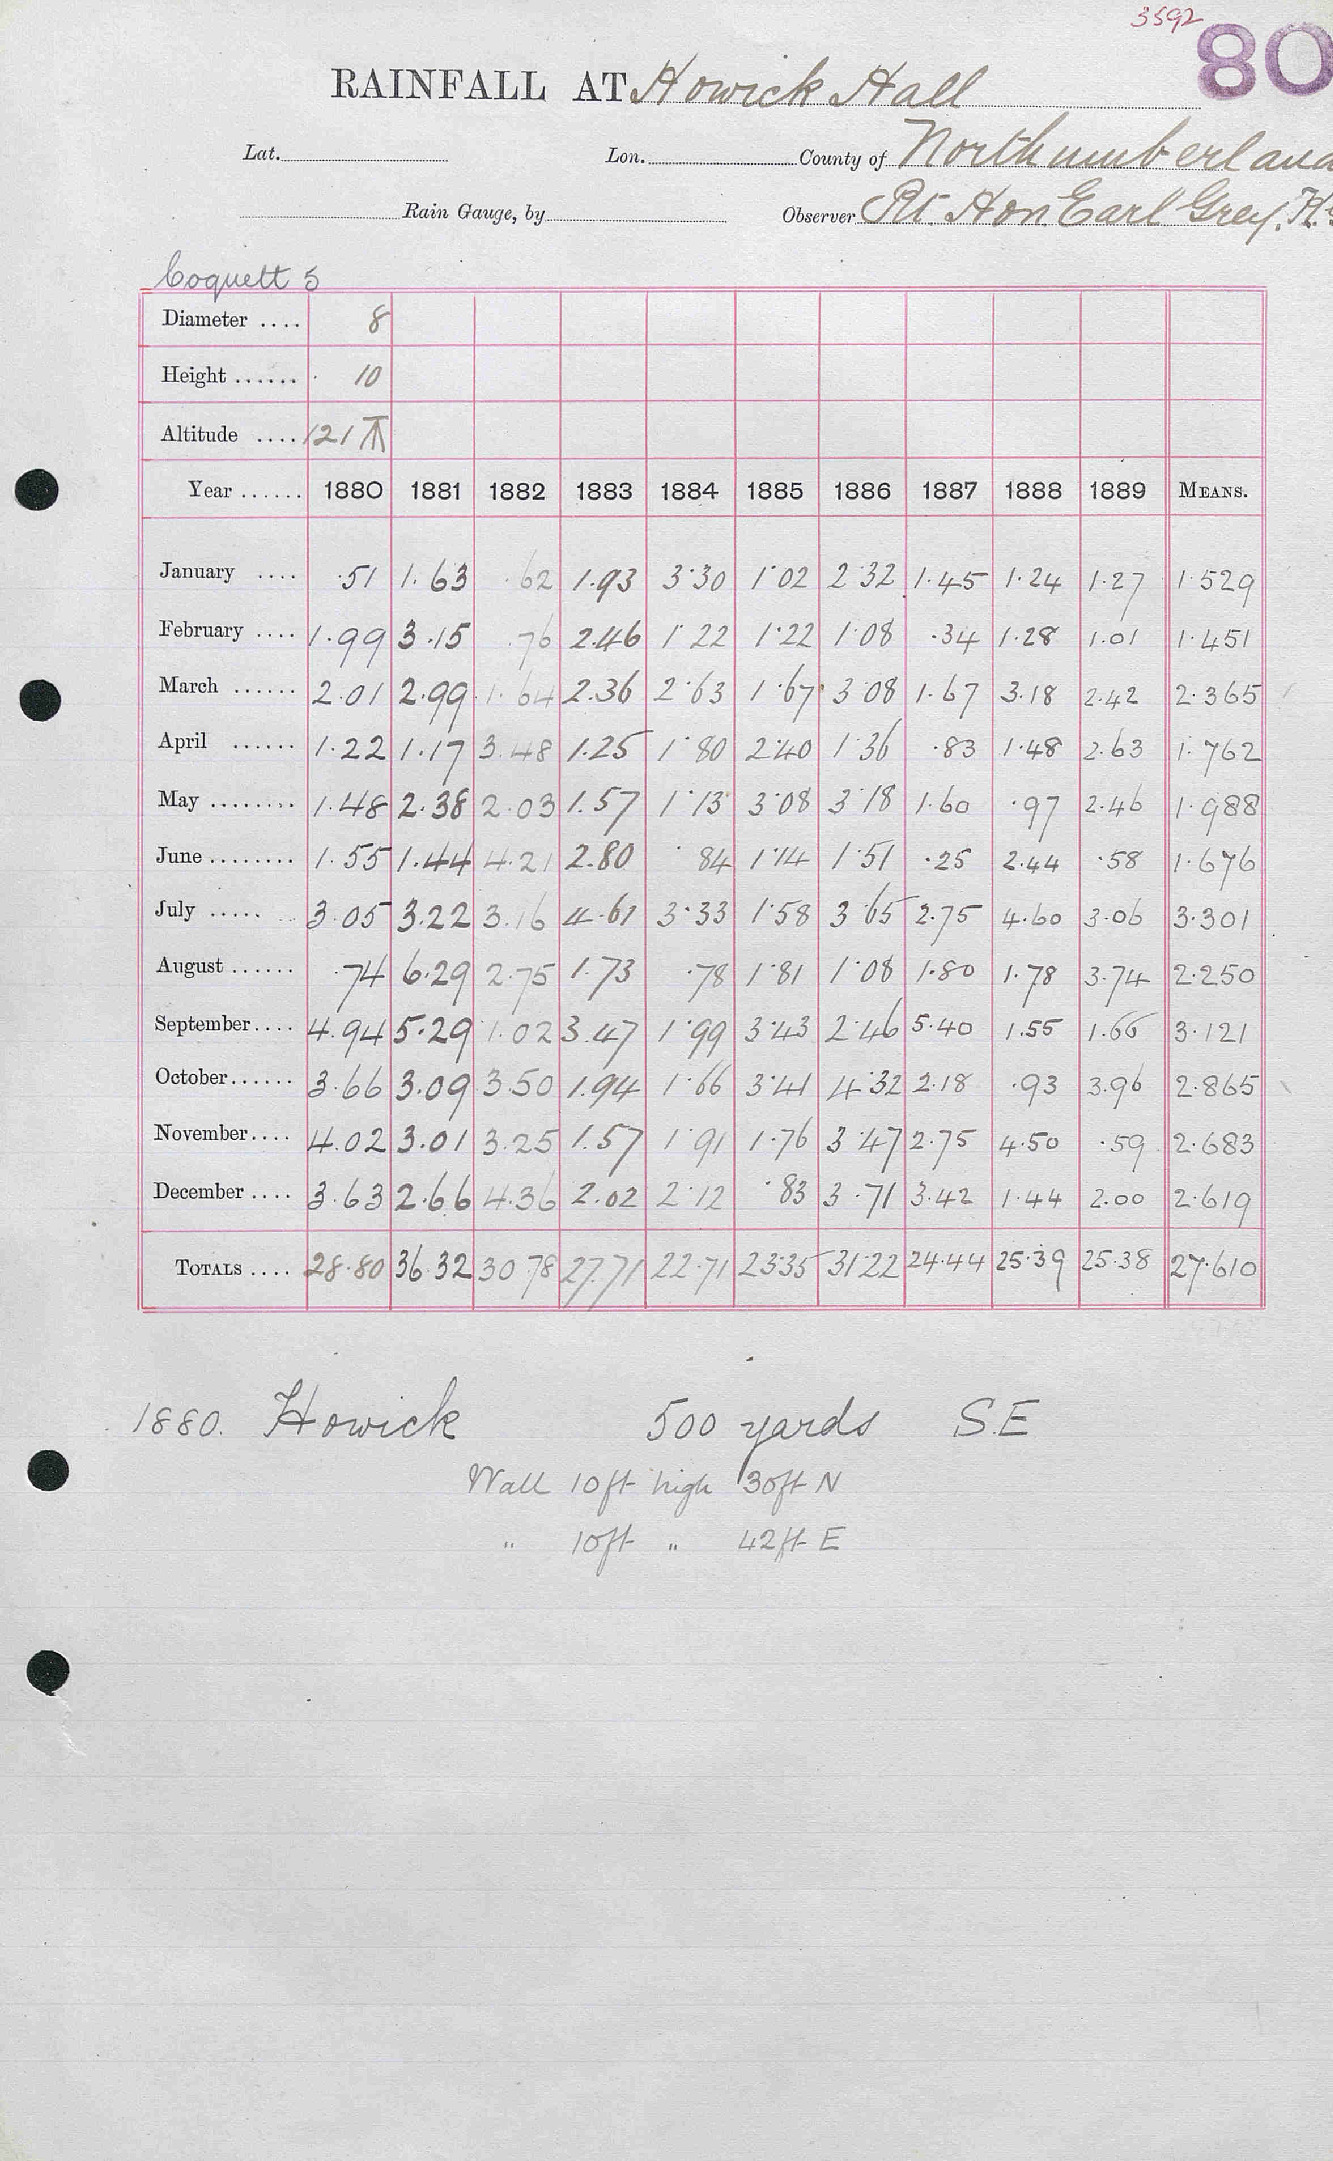 3592
80
RAINFALL AT Howick Hall
Lat. Lon. County of Northumberland
Rain Gauge, by Observer Rt. Hon Earl Grey, K.
Coquett 5
Diameter .... 8
Height ...... 10
Altitude .... 121
Year ...... 1880 1881 1882 1883 1884 1885 1886 1887 1888 1889 MEANS.
January .... .51 1.63 .62 1.93 3.30 1.02 2.32 1.45 1.24 1.27 1.529
February .... 1.99 3.15 .76 2.46 1.22 1.22 1.08 .34 1.28 1.01 1.451
March ...... 2.01 2.99 1.64 2.36 2.63 1.67 3.08 1.67 3.18 2.42 2.365
April ...... 1.22 1.17 3.48 1.25 1.80 2.40 1.36 .83 1.48 2.63 1.762
May ........ 1.48 2.38 2.03 1.57 1.13 3.08 3.18 1.60 .97 2.46 1.988
June ........ 1.55 1.44 4.21 2.80 .84 1.14 1.51 .25 2.44 .58 1.676
July ..... 3.05 3.22 3.16 4.61 3.33 1.58 3.65 2.75 4.60 3.06 3.301
August ...... .74 6.29 2.75 1.73 .78 1.81 1.08 1.80 1.78 3.74 2.250
September .... 4.94 5.29 1.02 3.47 1.99 3.43 2.46 5.40 1.55 1.66 3.121
October ...... 3.66 3.09 3.50 1.94 1.66 3.41 4.32 2.18 .93 3.96 2.865
November .... 4.02 3.01 3.25 1.57 1.91 1.76 3.47 2.75 4.50 .59 2.683
December .... 3.63 2.66 4.36 2.02 2.12 .83 3.71 3.42 1.44 2.00 2.619
TOTALS .... 28.80 36.32 30.78 27.71 22.71 23.35 31.22 24.44 25.39 25.38 27.610
1880. Howick 500 yards S.E
Wall 10ft high 30ft N
" 10ft " 42ft E